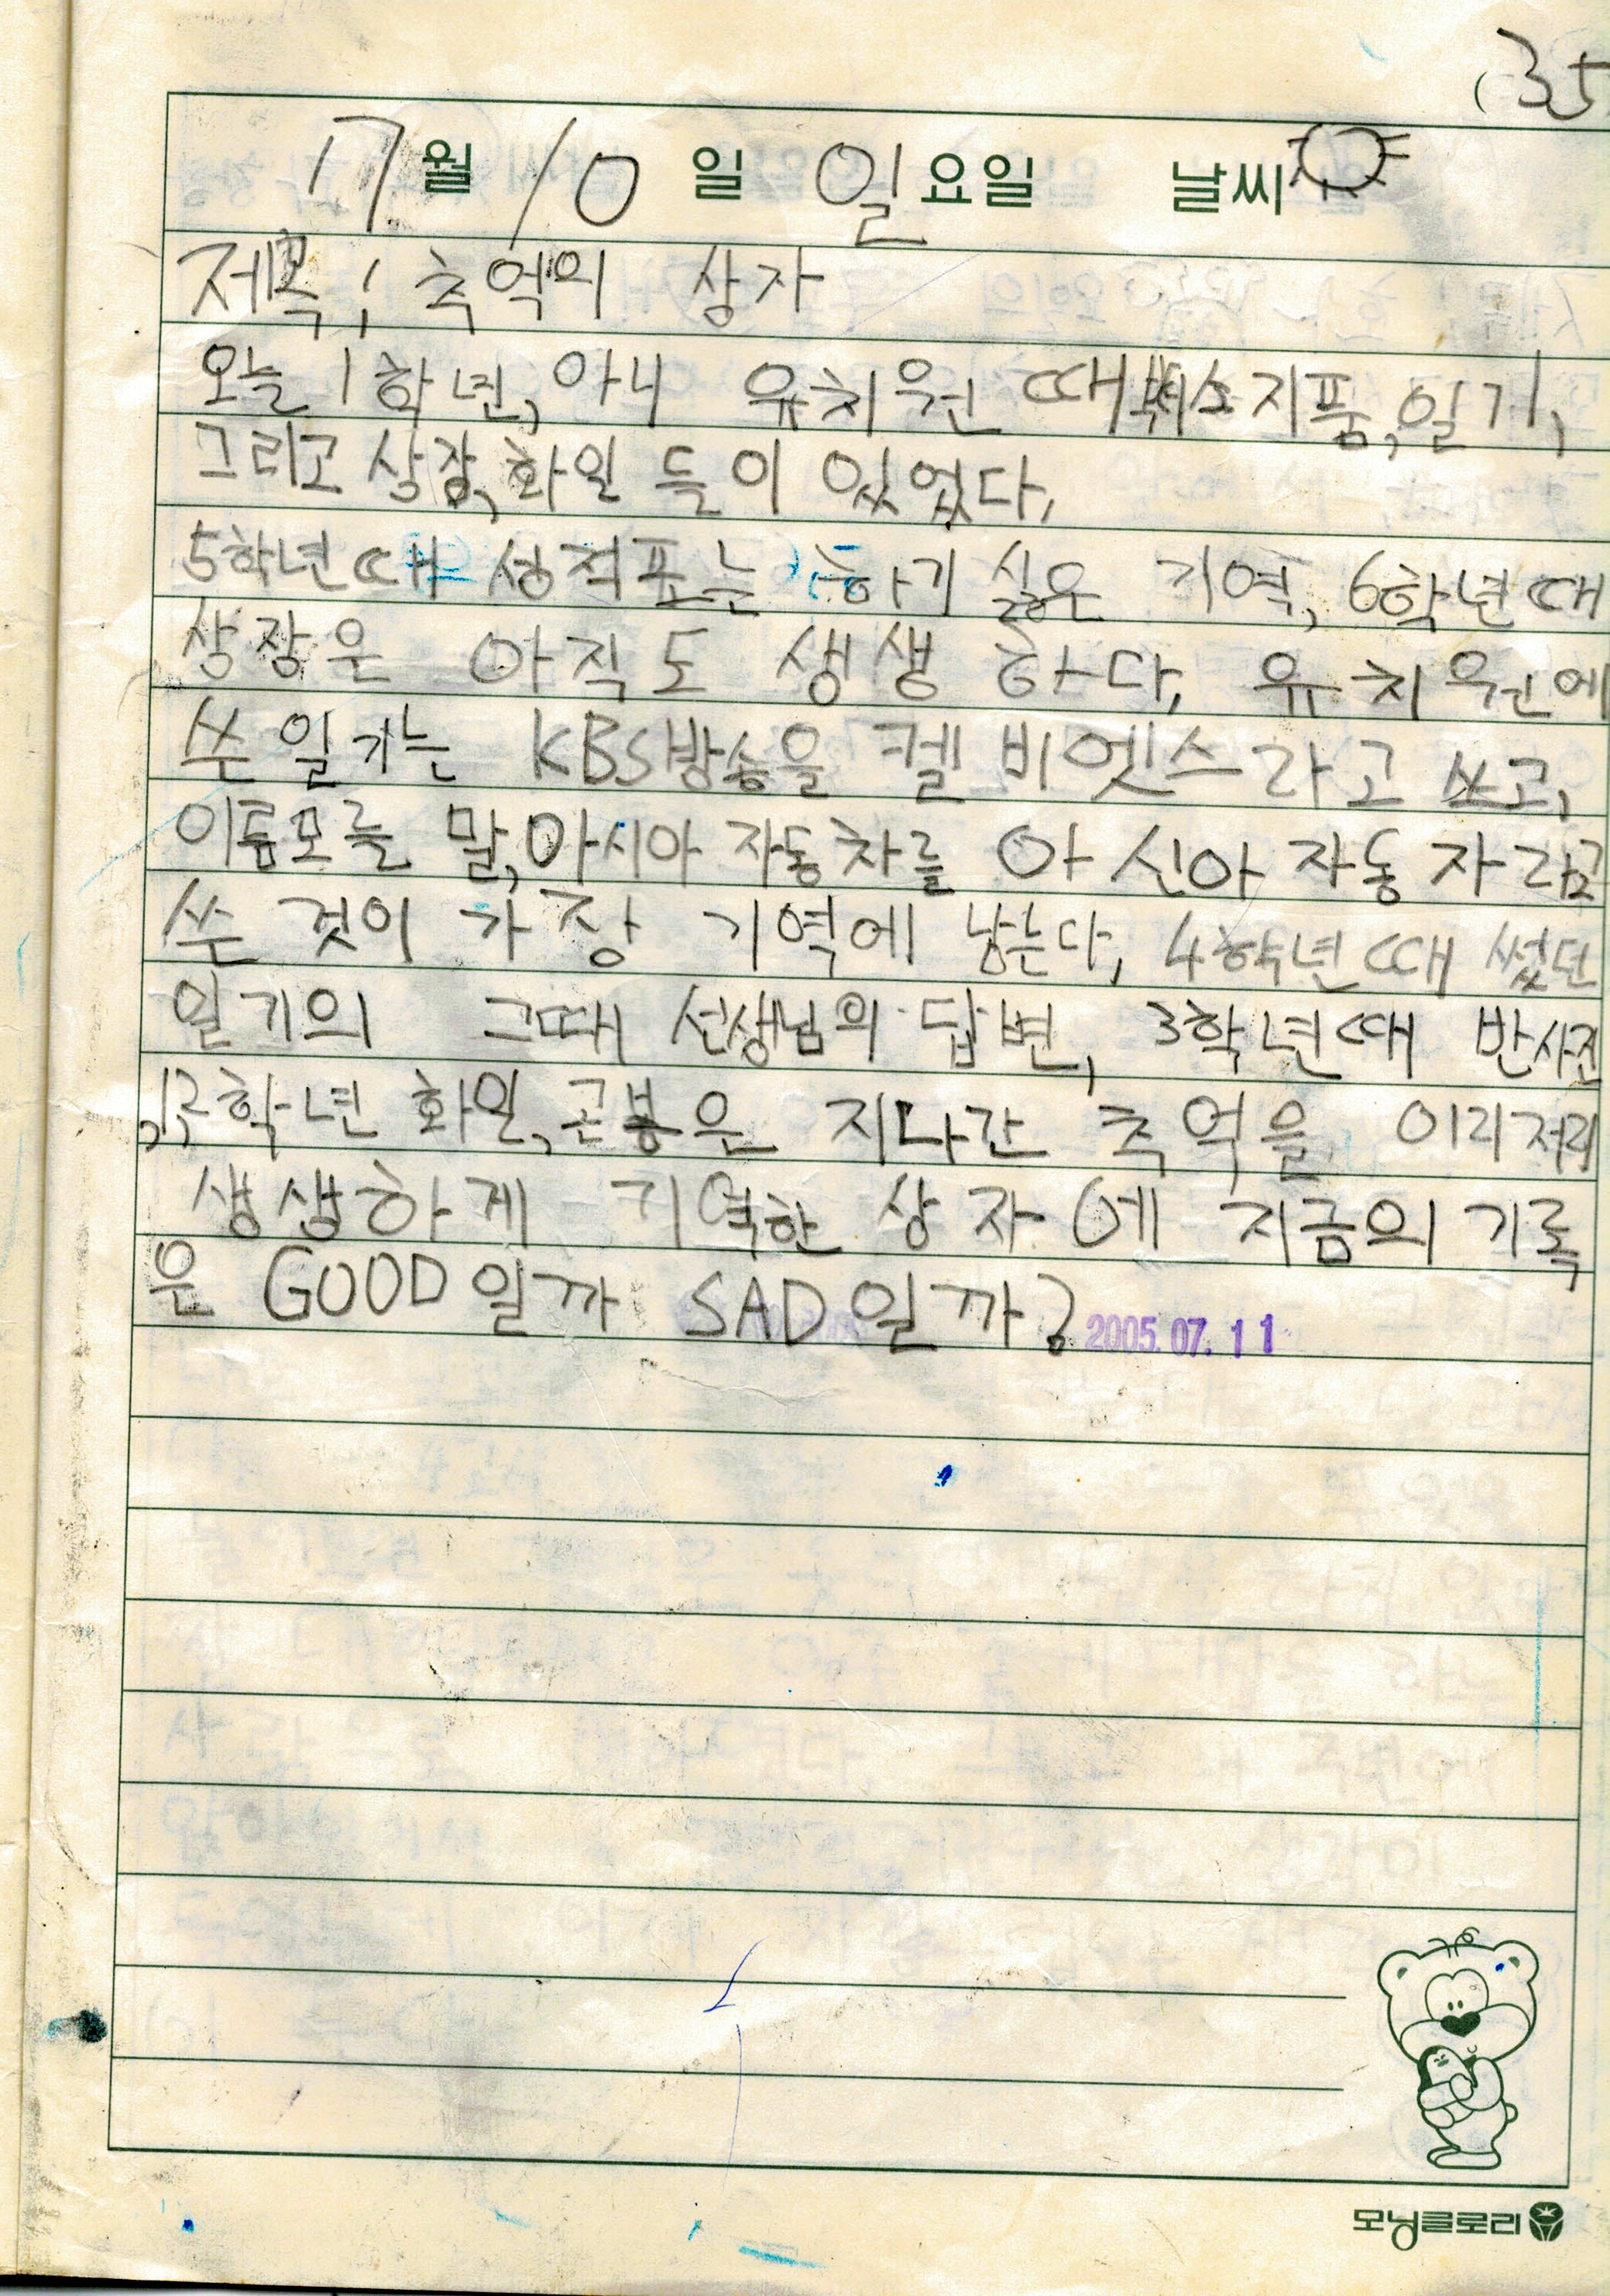 (35
17월 10일 일요일 날씨
제목; 추억의 상자
오늘 1학년, 아니 유치원 때 소지품, 일기,
그리고 상장, 화일 들이 있었다,
5학년때 성적표는 하기 싫은 기억, 6학년때
상장은 아직도 생생 하다, 유치원에
쓴 일기는 KBS방송을 켈 비엣스라고 쓰고,
이름모를 말, 아시아 자동차를 아 신아 자동 자라고
쓴 것이 가장 기역에 남는다, 4학년때 썼던
일기의 그때 선생님의 답변, 3학년때 반사진
,1,2학년 화일, 곤봉은 지나간 추억을 이리저리
생생하게 기역한 상자에 지금의 기록
은 GOOD일까 SAD일까? 2005.07.11
모닝글로리